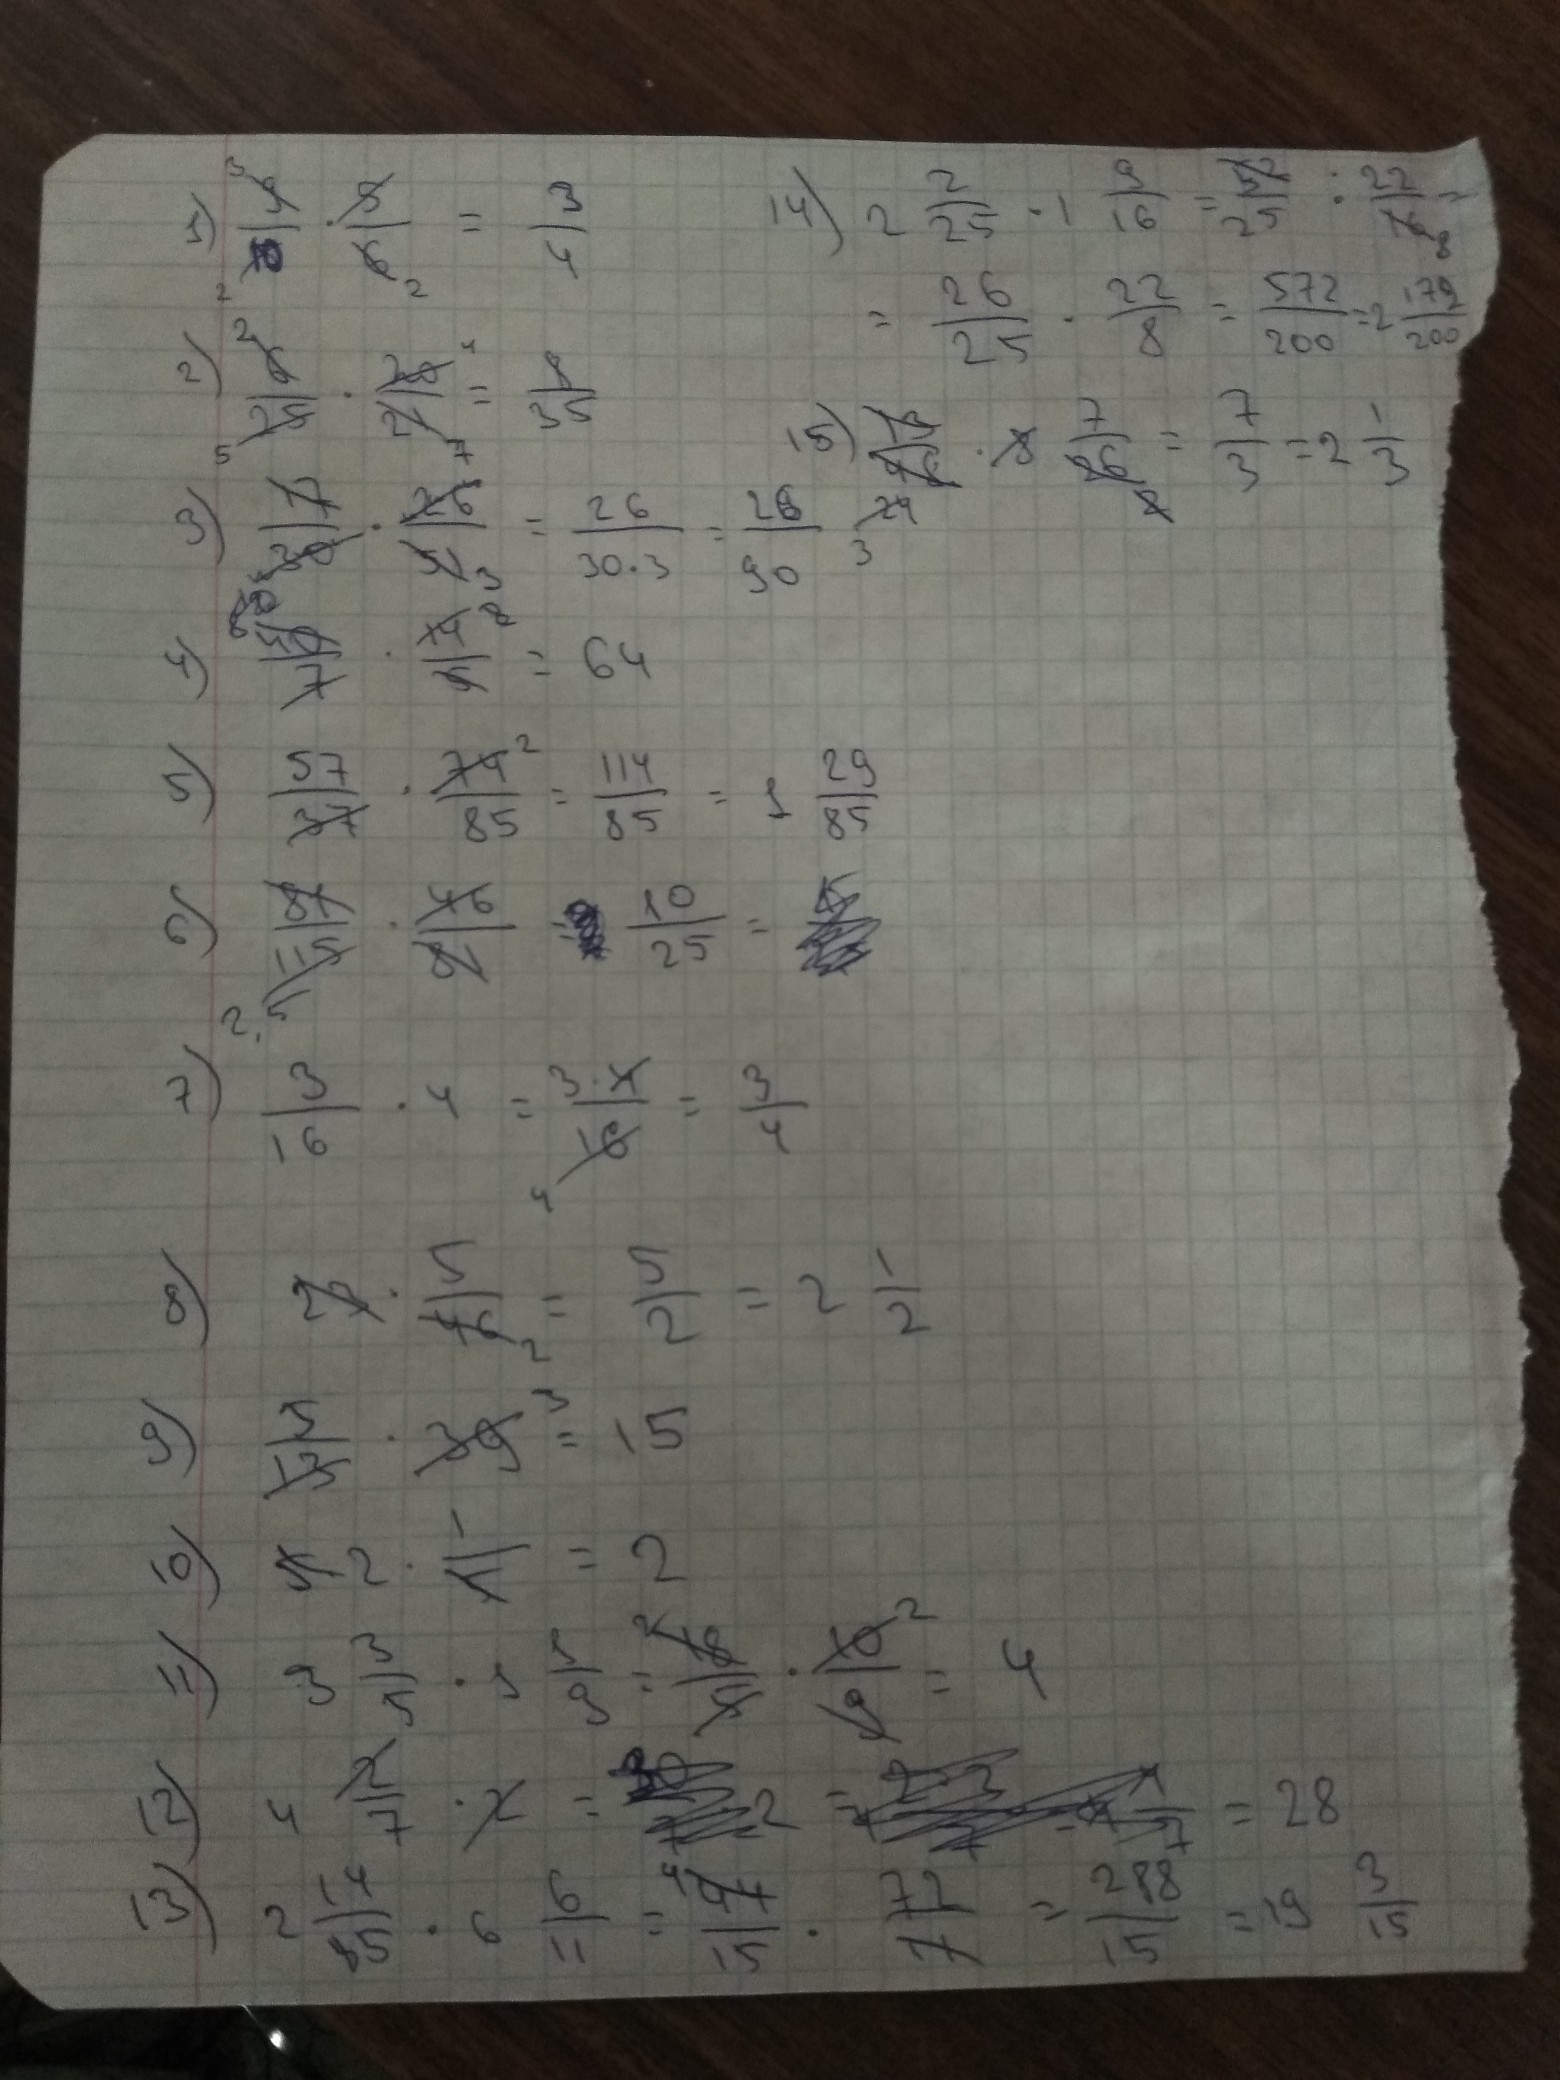 1) 9/10 · 5/6 = 3/4
2) 6/25 · 20/21 = 8/35
3) 17/30 · 26/51 = 26/30·3 = 26/90
4) 40/7 · 14/5 = 64
5) 57/37 · 74/85 = 114/85 = 1 29/85
6) 81/115 · 46/81 = 10/25 =
7) 3/16 · 4 = 3·4/16 = 3/4
8) 23 · 5/46 = 5/2 = 2 1/2
9) 5/13 · 39 = 15
10) 2 · 1/1 = 2
11) 3 3/5 · 1 1/9 = 18/5 · 10/9 = 4
12) 4 2/7 · 2 = = 28
13) 2 14/15 · 6 6/11 = 44/15 · 72/11 = 288/15 = 19 3/15
14) 2 2/25 · 1 9/16 = 52/25 · 22/16 =
= 26/25 · 22/8 = 572/200 = 2 172/200
15) · 7/26 = 7/3 = 2 1/3